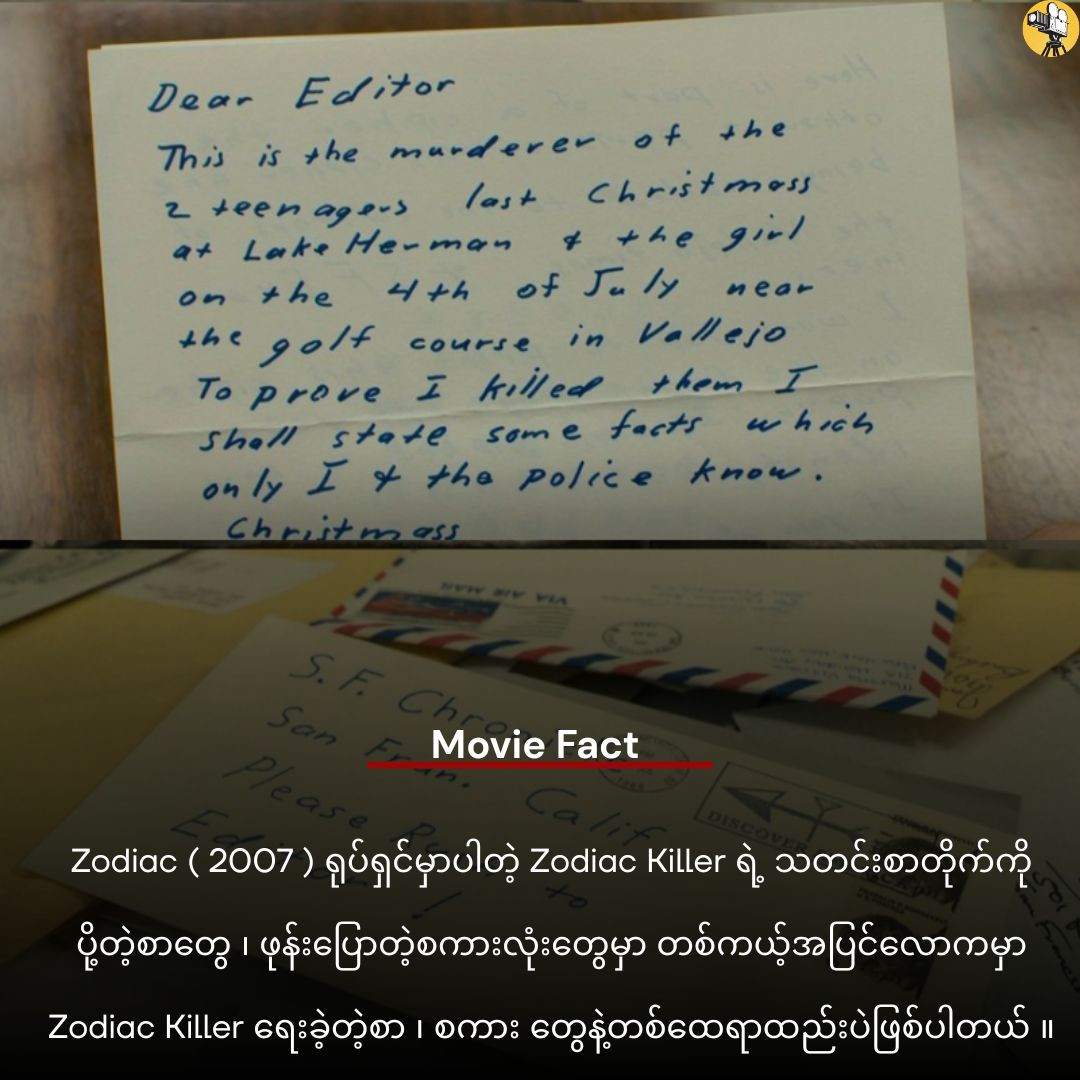 Dear Editor
This is the murderer of the
2 teenagers last Christmass
at Lake Herman & the girl
on the 4th of July near
the golf course in Vallejo
To prove I killed them I
shall state some facts which
only I & the police know.
Christmass
VIA AIR MAIL
S. F. Chron
San Fran. Calif
Please to
Editor !
DISCOVER
Movie Fact
Zodiac ( 2007 ) ရုပ်ရှင်မှာပါတဲ့ Zodiac Killer ရဲ့ သတင်းစာတိုက်ကို
ပို့တဲ့စာတွေ ၊ ဖုန်းပြောတဲ့စကားလုံးတွေမှာ တစ်ကယ့်အပြင်လောကမှာ
Zodiac Killer ရေးခဲ့တဲ့စာ ၊ စကား တွေနဲ့တစ်ထေရာထည်းပဲဖြစ်ပါတယ် ။